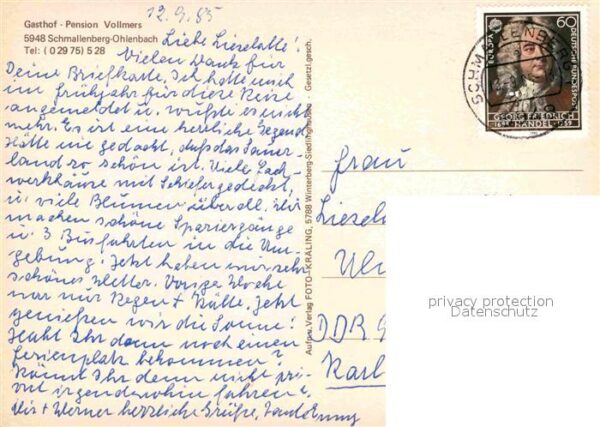 12.9.85
Gasthof - Pension Vollmers
5948 Schmallenberg-Ohlenbach
Tel: (0 29 75) 5 28
Liebe Lieselotte!
Vielen Dank für
Deine Briefkarte. Ich hatte mich
im Frühjahr für diese Reise
angemeldet u. wußte es nicht
mehr. Es ist eine herrliche Gegend
Hätte nie gedacht, daß das Sauer-
land so schön ist. Viele Fach-
werkhäuser mit Schiefer gedeckt,
u. viele Blumen überall. Wir
machen schöne Spaziergänge
u. 3 Busfahrten in die Um-
gebung. Jetzt haben wir sehr
schönes Wetter. Vorige Woche
war nur Regen + Kälte. Jetzt
genießen wir die Sonne!
Habt Ihr denn noch einen
Ferienplatz bekommen?
Könnt Ihr denn nicht pri-
vat irgendwohin fahren?
Dir + Werner herzliche Grüße,
Aufn. u. Verlag FOTO-KRALING, 5788 Winterberg-Siedlinghausen Gesetzl. gesch.
SCHMALLENBERG
60
DEUTSCHE BUNDESPOST
EUROPA
GEORG FRIEDRICH
HÄNDEL
Frau
Liesel
DDR
Karl
privacy protection
Datenschutz